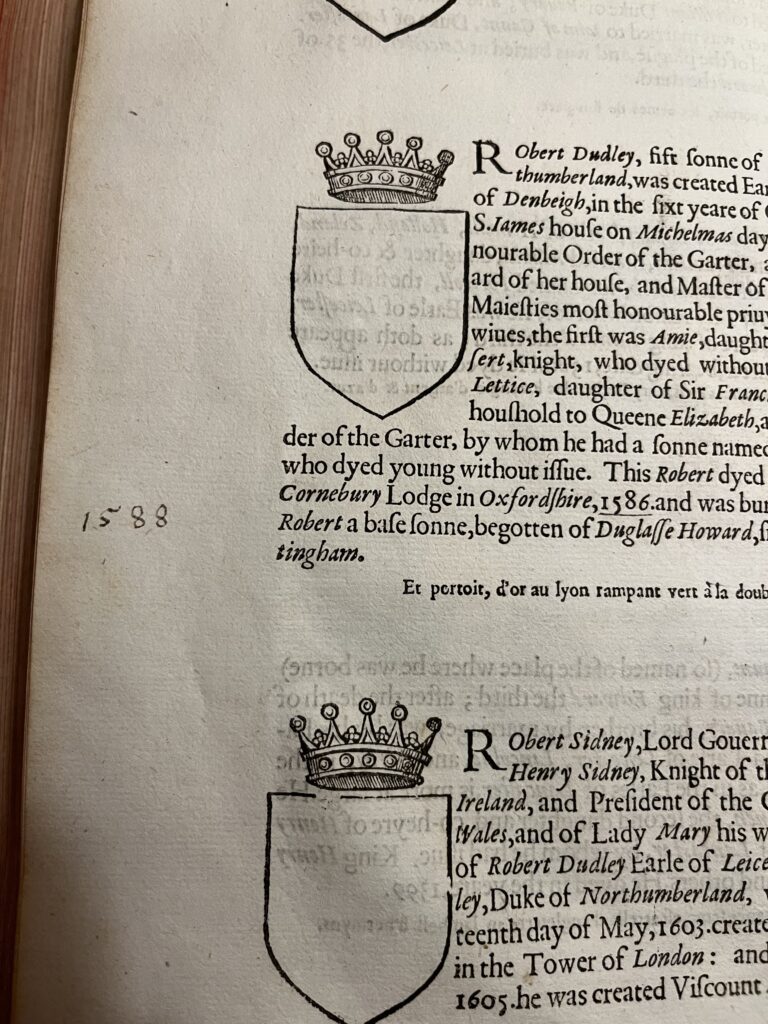 RObert Dudley, fift ſonne of
thumberland,was created Ear
of Denbeigh,in the ſixt yeare of
S.Iames houſe on Michelmas day
nourable Order of the Garter,
ard of her houſe, and Maſter of
Maieſties moſt honourable priuy
wiues,the firſt was Amie,daught
ſert,knight, who dyed without
Lettice, daughter of Sir Franc
houſhold to Queene Elizabeth,a
der of the Garter, by whom he had a ſonne named
who dyed young without iſſue. This Robert dyed
Cornebury Lodge in Oxfordſhire,1586.and was bur
1588
Robert a baſe ſonne,begotten of Duglaſſe Howard,ſi
tingham.
Et portoit, d'or au lyon rampant vert à la doub
RObert Sidney,Lord Gouern
Henry Sidney, Knight of th
Ireland, and Preſident of the C
Wales,and of Lady Mary his w
of Robert Dudley Earle of Leice
ley,Duke of Northumberland,
teenth day of May,1603.create
in the Tower of London: and
1605.he was created Viſcount